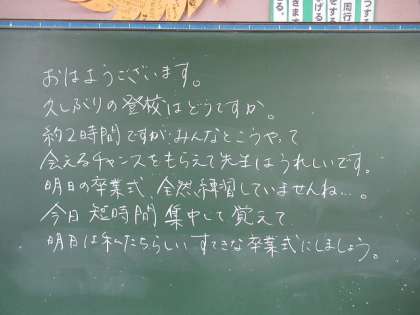 おはようございます。
久しぶりの登校はどうですか。
約2時間ですがみんなとこうやって
会えるチャンスをもらえて先生はうれしいです。
明日の卒業式、全然練習していませんね…。
今日 短時間 集中して覚えて
明日は私たちらしい すてきな卒業式にしましょう。